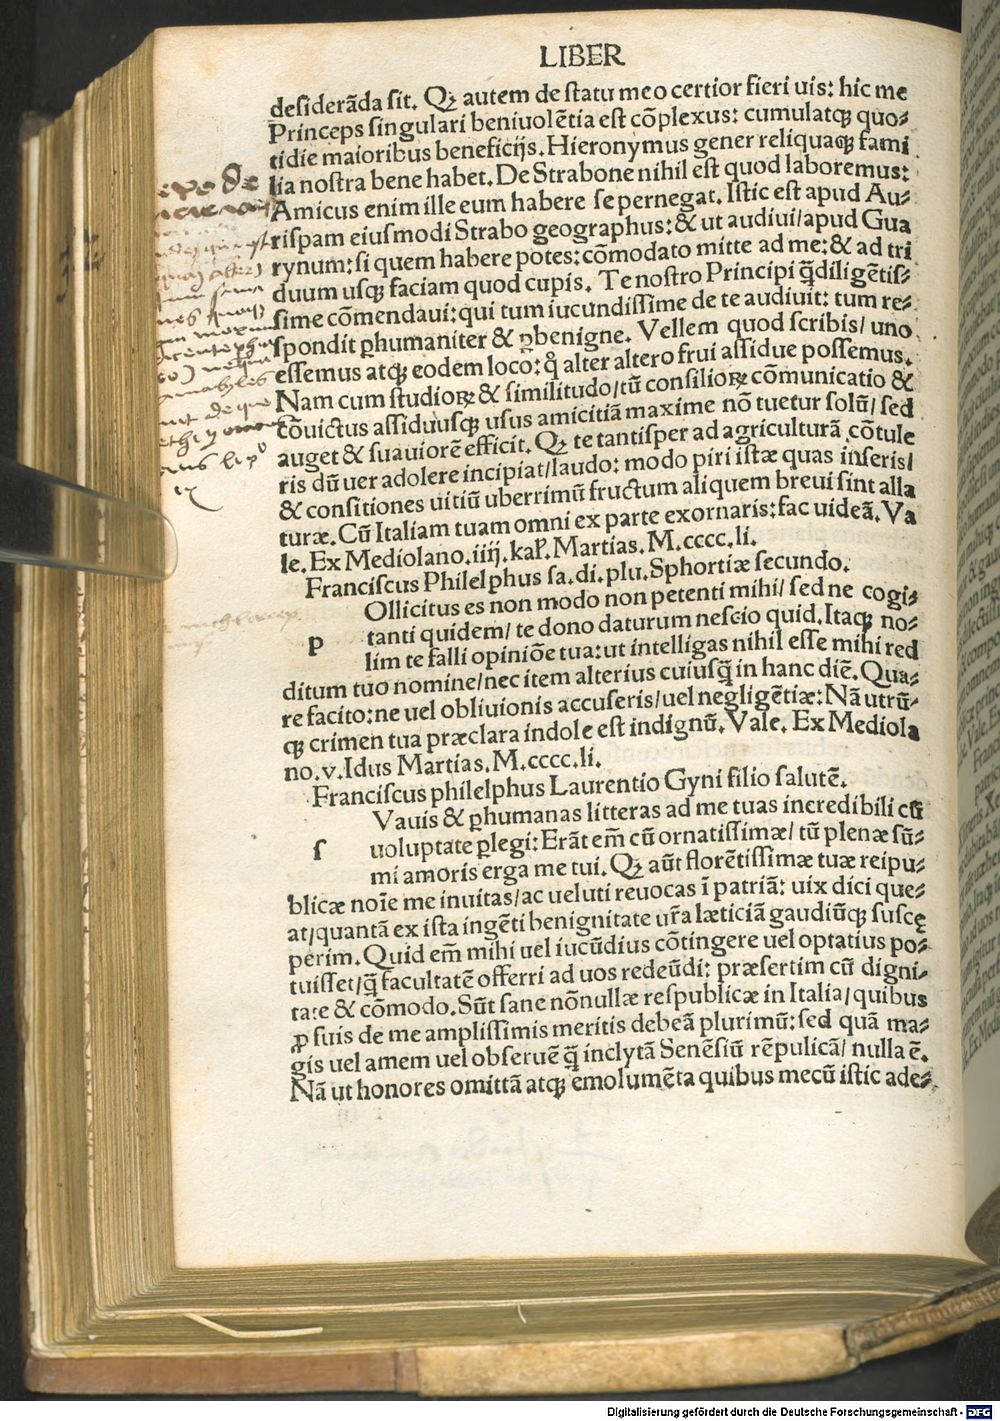 LIBER
desiderāda sit. Qꝫ autem de statu meo certior fieri uis: hic me
Princeps singulari beniuolētia est cōplexus: cumulatqꝫ quo⸗
tidie maioribus beneficijs. Hieronymus gener reliquaqꝫ fami
lia nostra bene habet. De Strabone nihil est quod laboremus:
Amicus enim ille eum habere se pernegat. Istic est apud Au⸗
rispam eiusmodi Strabo geographus: & ut audiui/ apud Gua
rynum: si quem habere potes: cōmodato mitte ad me: & ad tri
duum usqꝫ faciam quod cupis. Te nostro Principi q̄diligētis⸗
sime cōmendaui: qui tum iucundissime de te audiuit: tum re⸗
spondit ꝑhumaniter & ꝑbenigne. Vellem quod scribis/ uno
essemus atqꝫ eodem loco: qͦ alter altero frui assidue possemus.
Nam cum studioꝝ & similitudo/ tū consilioꝝ cōmunicatio &
cōuictus assiduusqꝫ usus amicitiā maxime nō tuetur solū/ sed
auget & suauiorē efficit. Qꝫ te tantisper ad agriculturā cōtule
ris dū uer adolere incipiat/ laudo: modo piri istæ quas inseris/
& consitiones uitiū uberrimū fructum aliquem breui sint alla
turæ. Cū Italiam tuam omni ex parte exornaris: fac uideā. Va
le. Ex Mediolano. iiij. kaꝉ. Martias. M. cccc. li.
Franciscus Philelphus sa. di. plu. Sphortiæ secundo.
Ollicitus es non modo non petenti mihi/ sed ne cogi⸗
p tanti quidem/ te dono daturum nescio quid. Itaqꝫ no⸗
lim te falli opiniōe tua: ut intelligas nihil esse mihi red
ditum tuo nomine/ nec item alterius cuiusq̄ in hanc diē. Qua⸗
re facito: ne uel obliuionis accuseris/ uel negligētiæ: Nā utrū⸗
qꝫ crimen tua præclara indole est indignū. Vale. Ex Mediola
no. v. Idus Martias. M. cccc. li.
Franciscus philelphus Laurentio Gyni filio salutē.
Vauis & ꝑhumanas litteras ad me tuas incredibili cū
s uoluptate ꝑlegi: Erāt em̄ cū ornatissimæ/ tū plenæ sū⸗
mi amoris erga me tui. Qꝫ aūt florētissimæ tuæ reipu⸗
blicæ noīe me inuitas/ ac ueluti reuocas ī patriā: uix dici que⸗
at/ quantā ex ista ingēti benignitate ur̄a læticiā gaudiūqꝫ suscę
perim. Quid em̄ mihi uel iucūdius cōtingere uel optatius po⸗
tuisset/ q̄ facultatē offerri ad uos redeūdi: præsertim cū digni⸗
tate & cōmodo. Sūt sane nōnullæ respublicæ in Italia/ quibus
ꝓ suis de me amplissimis meritis debeā plurimū: sed quā ma⸗
gis uel amem uel obseruē q̄ inclytā Senēsiū rēpulicā/ nulla ē.
Nā ut honores omittā atqꝫ emolumēta quibus mecū istic ade⸗
Digitalisierung gefördert durch die Deutsche Forschungsgemeinschaft - DFG